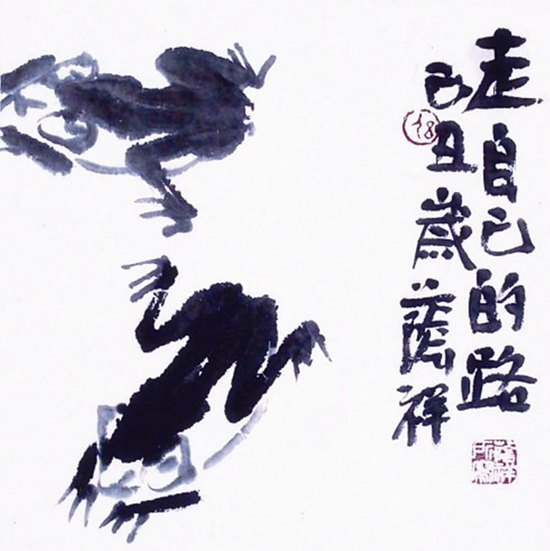 走自己的路
己丑歲蔭祥